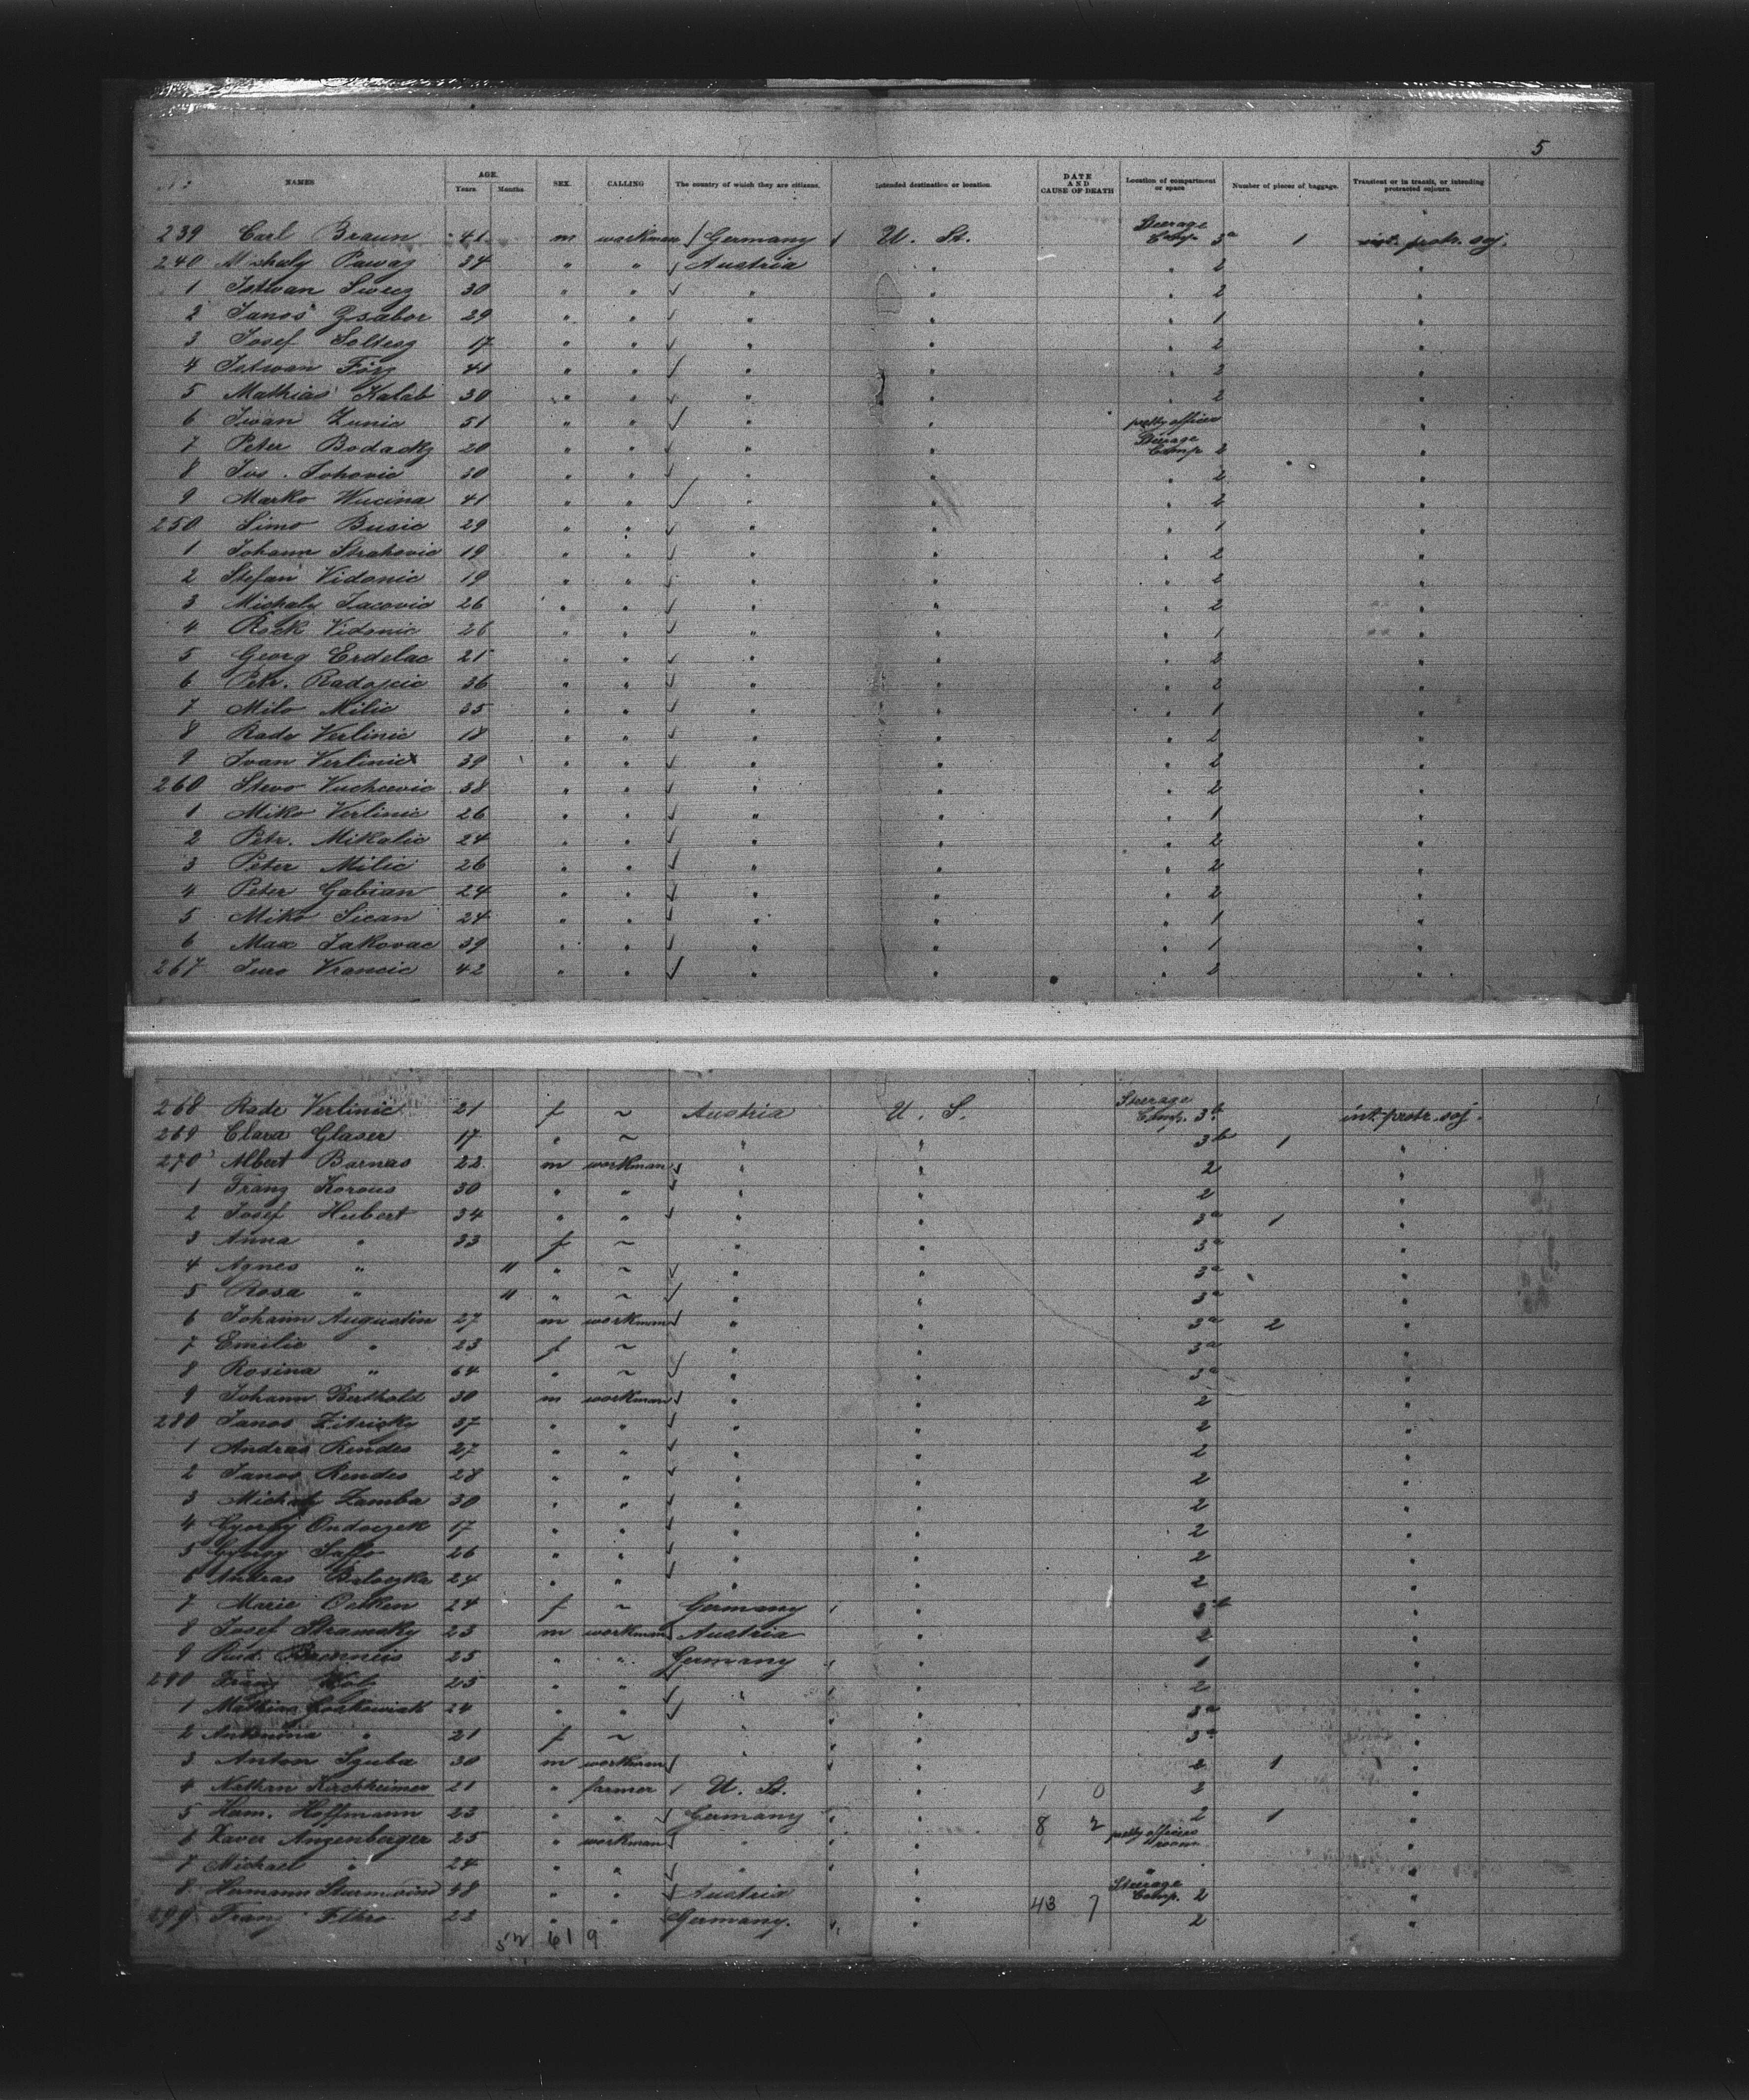 5
NAMES AGE. Years Months SEX. CALLING The country of which they are citizens. Intended destination or location. DATE AND CAUSE OF DEATH Location of compartment or space Number of pieces of baggage. Transient or in transit, or intending protracted sojourn.
239 Carl Braun 41 m workman Germany U. St. Steerage Comp. 3a 1 int. protr. soj.
240 Mihaly 34 " " Austria " " 2 "
1 Istwan 30 " " " " " 2 "
2 Janos Zsabor 29 " " " " " 1 "
3 Josef Soltesz 17 " " " " " 2 "
4 Istwan 41 " " " " " 2 "
5 Mathias Kalab 30 " " " " " 2 "
6 Iwan Zunic 51 " " " " petty officer "
7 Peter Bodacky 20 " " " " Steerage Comp 2 "
8 Jos. 30 " " " " " 2 "
9 Marko Wucina 41 " " " " " 2 "
250 Simo Busic 29 " " " " " 1 "
1 Johann Strahovic 19 " " " " " 2 "
2 Stefan Vidonic 19 " " " " " 2 "
3 Michaly Jacovic 26 " " " " " 2 "
4 Rock Vidonic 26 " " " " " 1 "
5 Georg Erdelac 21 " " " " " 2 "
6 Petr. Radojcic 36 " " " " " 2 "
7 Milo Milic 35 " " " " " 1 "
8 Rade Verlinic 18 " " " " " 2 "
9 Ivan Verlinic 39 " " " " " 2 "
260 Stevo 38 " " " " " 2 "
1 Miko Verlinic 26 " " " " " 1 "
2 Petr. Mikalic 24 " " " " " 2 "
3 Peter Milic 26 " " " " " 2 "
4 Peter Gabian 24 " " " " " 2 "
5 Miko Sican 24 " " " " " 1 "
6 Max Jakovac 39 " " " " " 1 "
267 Juro Vrancic 42 " " " " " 2 "
268 Rade Verlinic 21 f ~ Austria U. S. Steerage Comp. 3b int. protr. soj.
269 Clara Glaser 17 " ~ " " 3b 1 "
270 Albert Barnas 22 m workman " " 2 "
1 Franz Korous 30 " " " " 2 "
2 Josef Hubert 34 " " " " 3a 1 "
3 Anna " 33 f ~ " " 3a "
4 Agnes " 11 " ~ " " 3a "
5 Rosa " 11 " ~ " " 3a "
6 Johann Augustin 27 m workman " " 3a 2 "
7 Emilie " 23 f ~ " " 3a "
8 Rosina " 64 " ~ " " 3a "
9 Johann Berthold 30 m workman " " 2 "
280 Janos Zitricky 37 " " " " 2 "
1 Andras Rendes 27 " " " " 2 "
2 Janos Rendes 28 " " " " 2 "
3 Michaly Zamba 30 " " " " 2 "
4 Gyorgy Ondoczek 17 " " " " 2 "
5 Gyorgy 26 " " " " 2 "
6 Andras 24 " " " " 2 "
7 Marie Oetken 24 f ~ Germany " 3b "
8 Josef Stramsky 23 m workman Austria " 2 "
9 Rud. 25 " " Germany " 1 "
290 Franz 25 " " " " 2 "
1 Mathias 24 " " " " 3a "
2 Antonina " 21 f ~ " " 3a "
3 Anton Szuba 30 m workman " " 2 1 "
4 Nathan Kirchheimer 21 " farmer U. St. " 1 0 2 "
5 Herm. Hoffmann 23 " " Germany " 8 2 2 1 "
6 Xaver Anzenberger 25 " workman " " petty officers room "
7 Michael " 24 " " " " " "
8 Hermann 48 " " Austria " Steerage Comp. 2 "
299 Franz 22 " " Germany. " 43 7 2 "
52 61 9